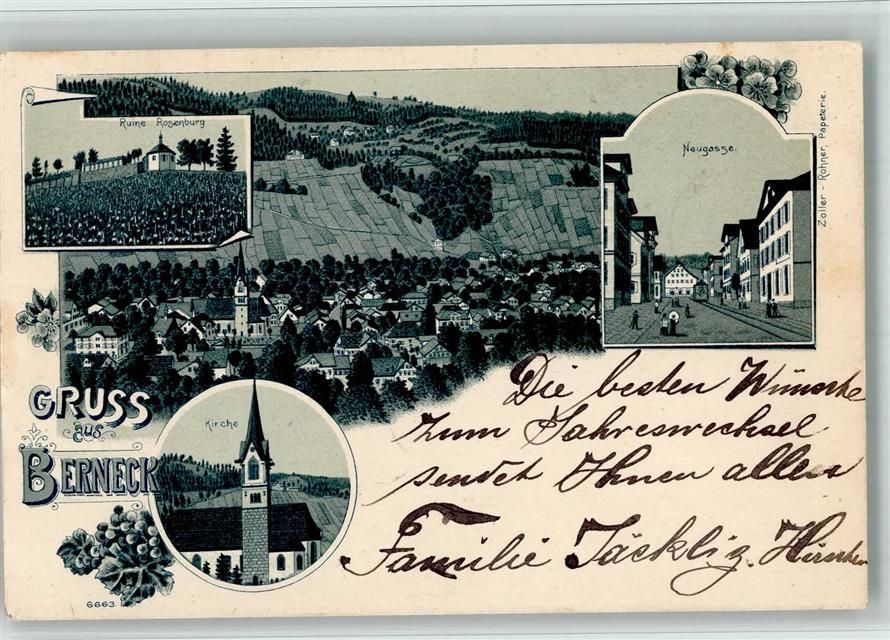 Ruine Rosenburg
Neugasse.
Zoller-Rohner, Papeterie.
GRUSS
aus
BERNECK
Kirche
6663
Die besten Wünsche
zum Jahreswechsel
sendet Ihnen allen
Familie Jäckli z.